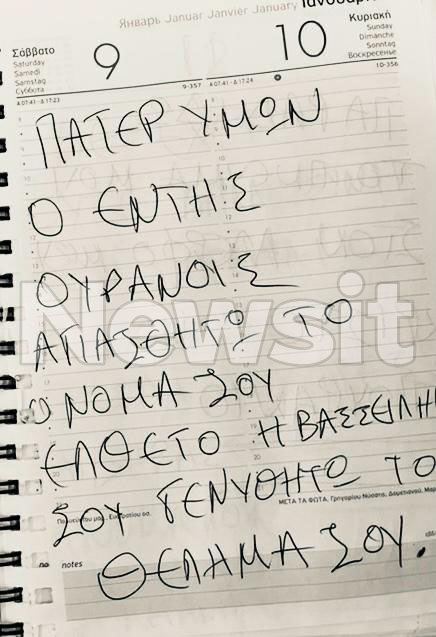 Январь Januar Janvier January Ιανουάριος
Σάββατο
Saturday
Samedi
Samstag
Суббота
9
10
Κυριακή
Sunday
Dimanche
Sonntag
Воскресенье
Α 07:41 - Δ 17:23
9-357
Α 07:41 - Δ 17:24
10-356
ΠΑΤΕΡ ΥΜΩΝ
Ο ΕΝΤΗΣ
ΟΥΡΑΝΟΙΣ
ΑΓΙΑΣΘΗΤΩ ΤΟ
Newsit
ΟΝΟΜΑ ΣΟΥ
ΕΛΘΕΤΟ Η ΒΑΣΣΕΙΛΗ
ΣΟΥ ΓΕΝΥΘΗΤΩ ΤΟ
ΜΕΤΑ ΤΑ ΦΩΤΑ, Γρηγορίου Νύσσης, Δομετιανού,
ΘΕΛΗΜΑ ΣΟΥ.
notes